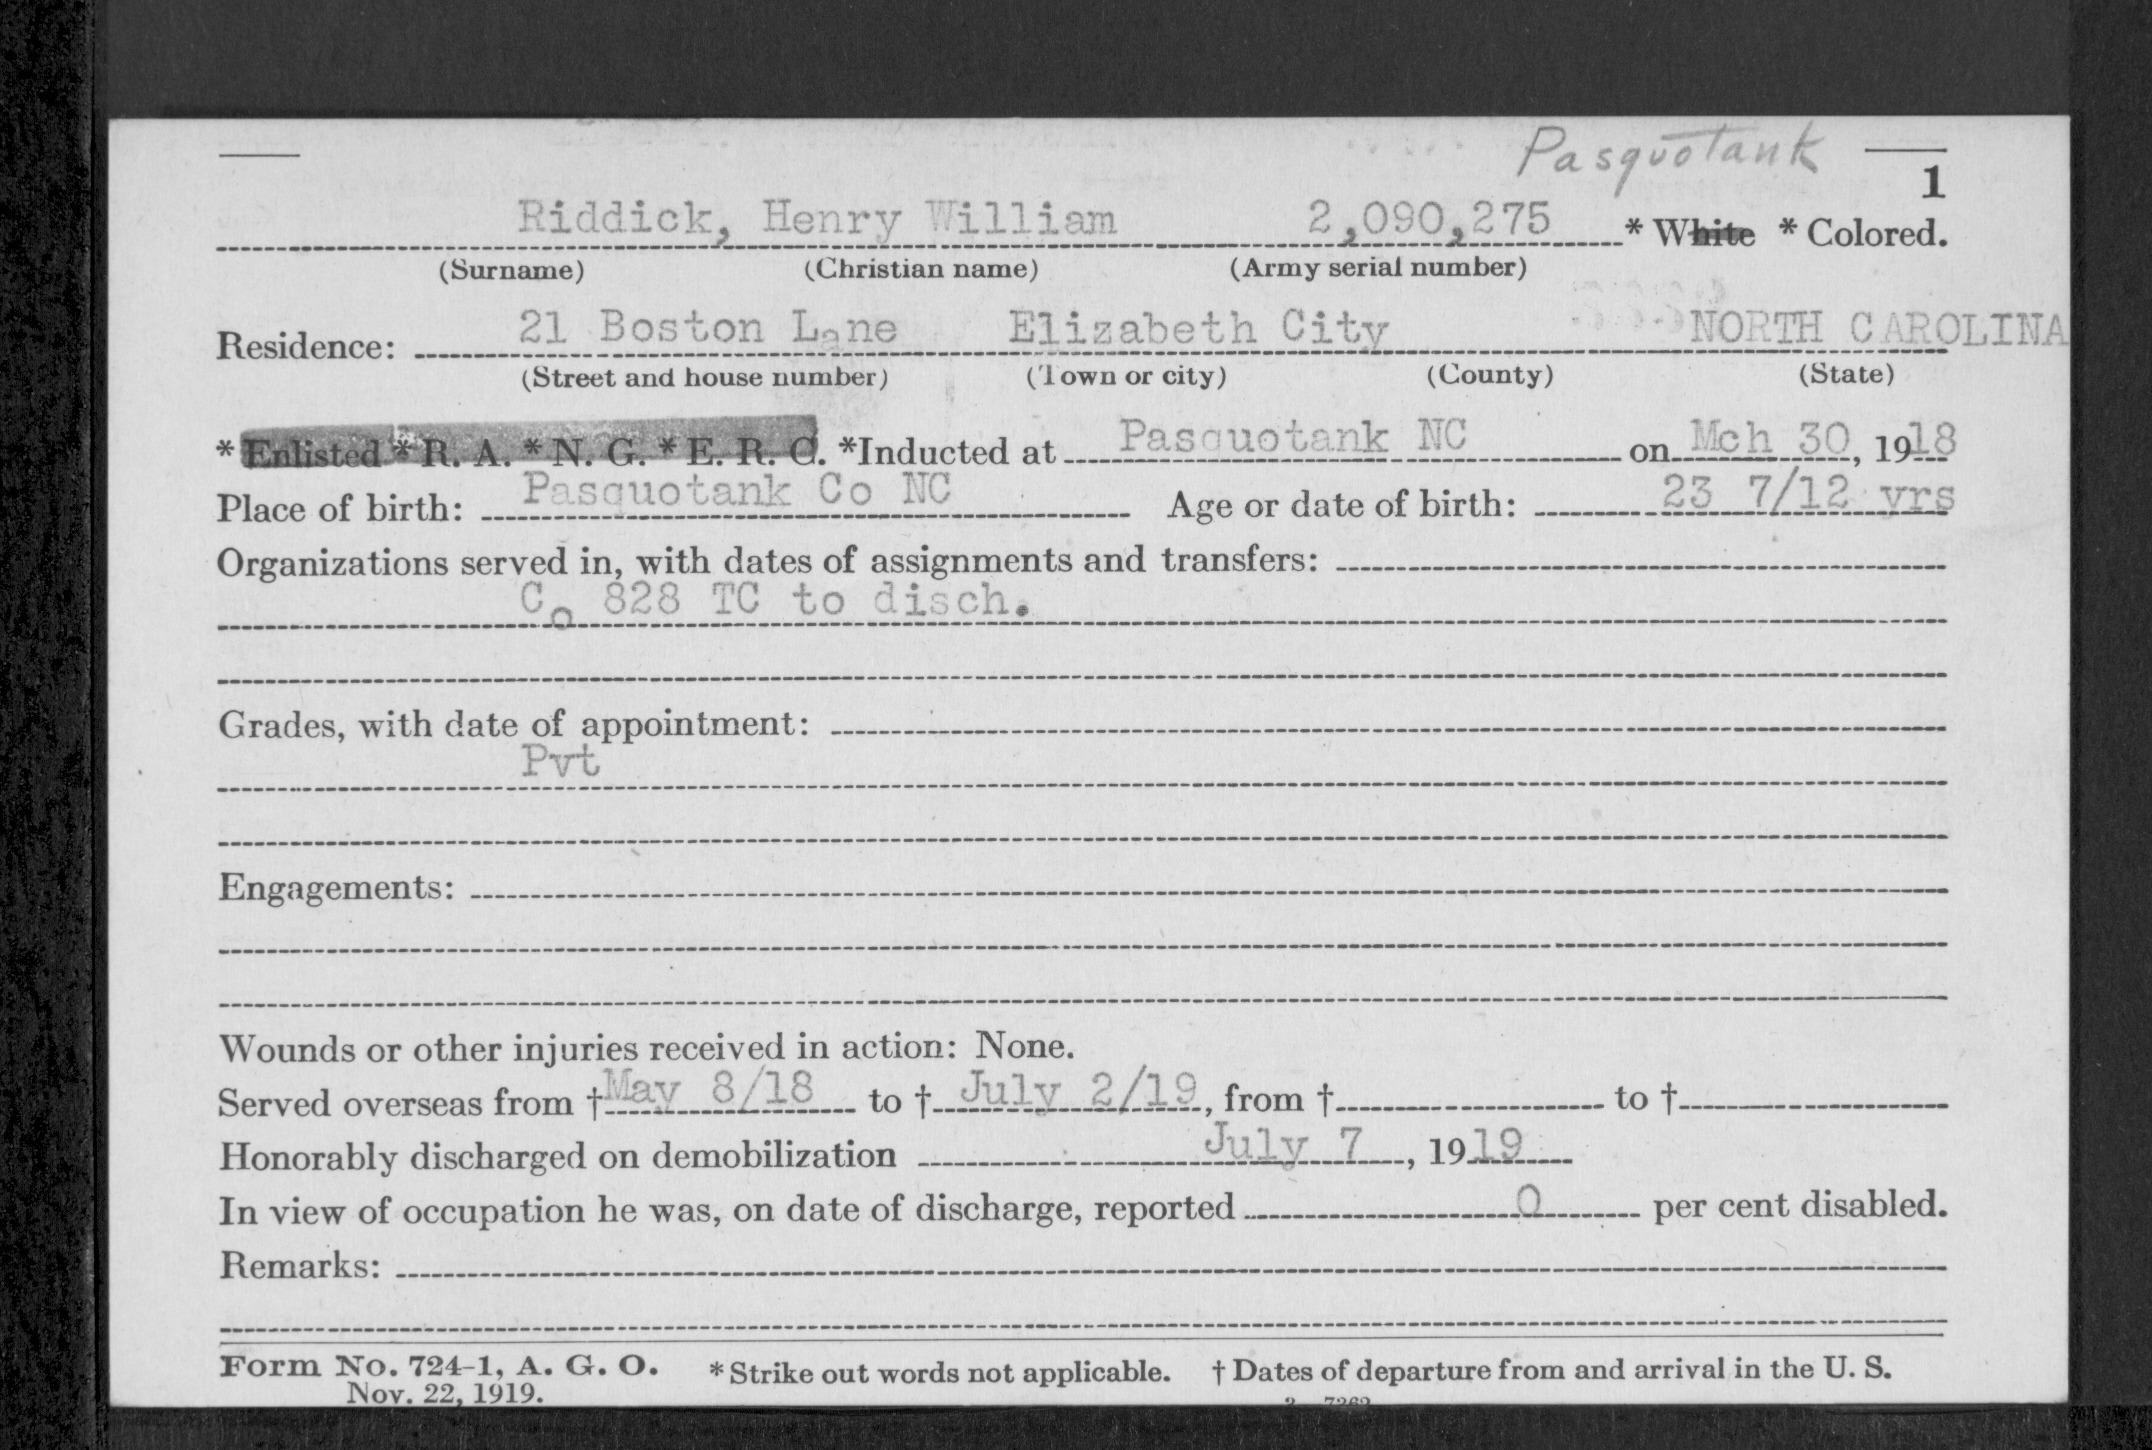 Pasquotank
1
Riddick, Henry William 2,090,275 * White * Colored.
(Surname) (Christian name) (Army serial number)
Residence: 21 Boston Lane Elizabeth City NORTH CAROLINA
(Street and house number) (Town or city) (County) (State)
* Enlisted * R. A. * N. G. * E. R. C. *Inducted at Pasquotank NC on Mch 30, 1918
Place of birth: Pasquotank Co NC Age or date of birth: 23 7/12 yrs
Organizations served in, with dates of assignments and transfers:
Co 828 TC to disch.
Grades, with date of appointment:
Pvt
Engagements:
Wounds or other injuries received in action: None.
Served overseas from † May 8/18 to † July 2/19, from † to †
Honorably discharged on demobilization July 7, 1919
In view of occupation he was, on date of discharge, reported 0 per cent disabled.
Remarks:
Form No. 724-1, A. G. O. * Strike out words not applicable. † Dates of departure from and arrival in the U. S.
Nov. 22, 1919.